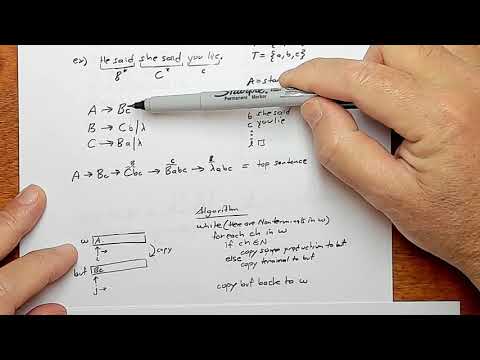 ex) He said she said you lie.
B* C* c
T = {a, b, c}
A = sta
Sharpie.
Permanent Marker
b she said
c you lie
A → Bc
B → Cb | λ
C → Ba | λ
A → Bc → Cbc → Babc → λabc = top sentence
B C B
Algorithm
while (there are Nonterminals in w)
foreach ch in w
if ch ∈ N
copy some production to buf
else
copy terminal to buf
copy buf back to w
w A
copy
buf Bc
i →
j →